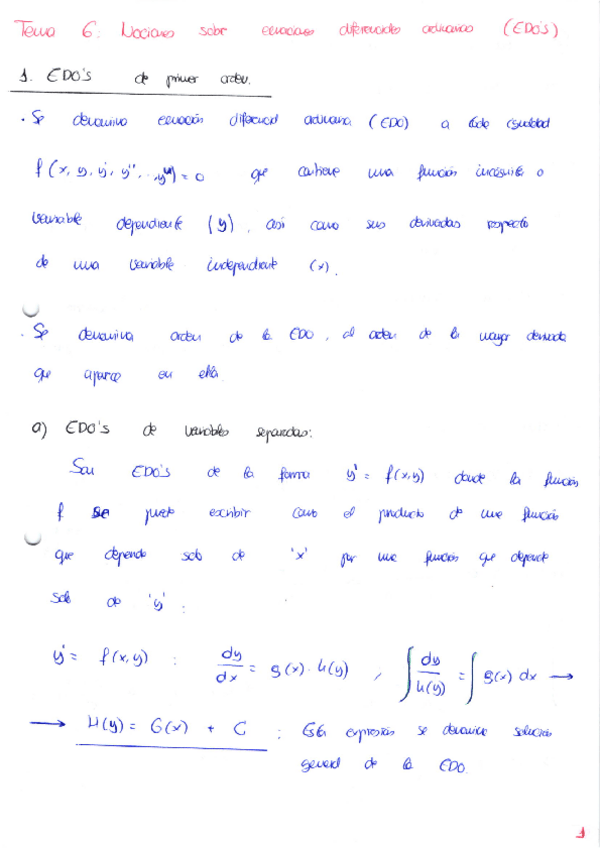 Tema 6: Nociones sobre ecuaciones diferenciales ordinarias (EDO's)
1. EDO's de primer orden.
· Se denomina ecuación diferencial ordinaria (EDO) a toda igualdad
f(x, y, y', y'', ..., yⁿ) = 0 que contiene una función incógnita o
variable dependiente (y), así como sus derivadas respecto
de una variable independiente (x).
· Se denomina orden de la EDO, al orden de la mayor derivada
que aparece en ella
a) EDO's de variables separadas:
Son EDO's de la forma y' = f(x,y) donde la función
f se puede escribir como el producto de una función
que depende solo de 'x' por una función que depende
solo de 'y':
y' = f(x,y) : dy/dx = g(x)·h(y) , ∫ dy/h(y) = ∫ g(x) dx →
→ H(y) = G(x) + C : Esta expresión se denomina solución
general de la EDO.
1